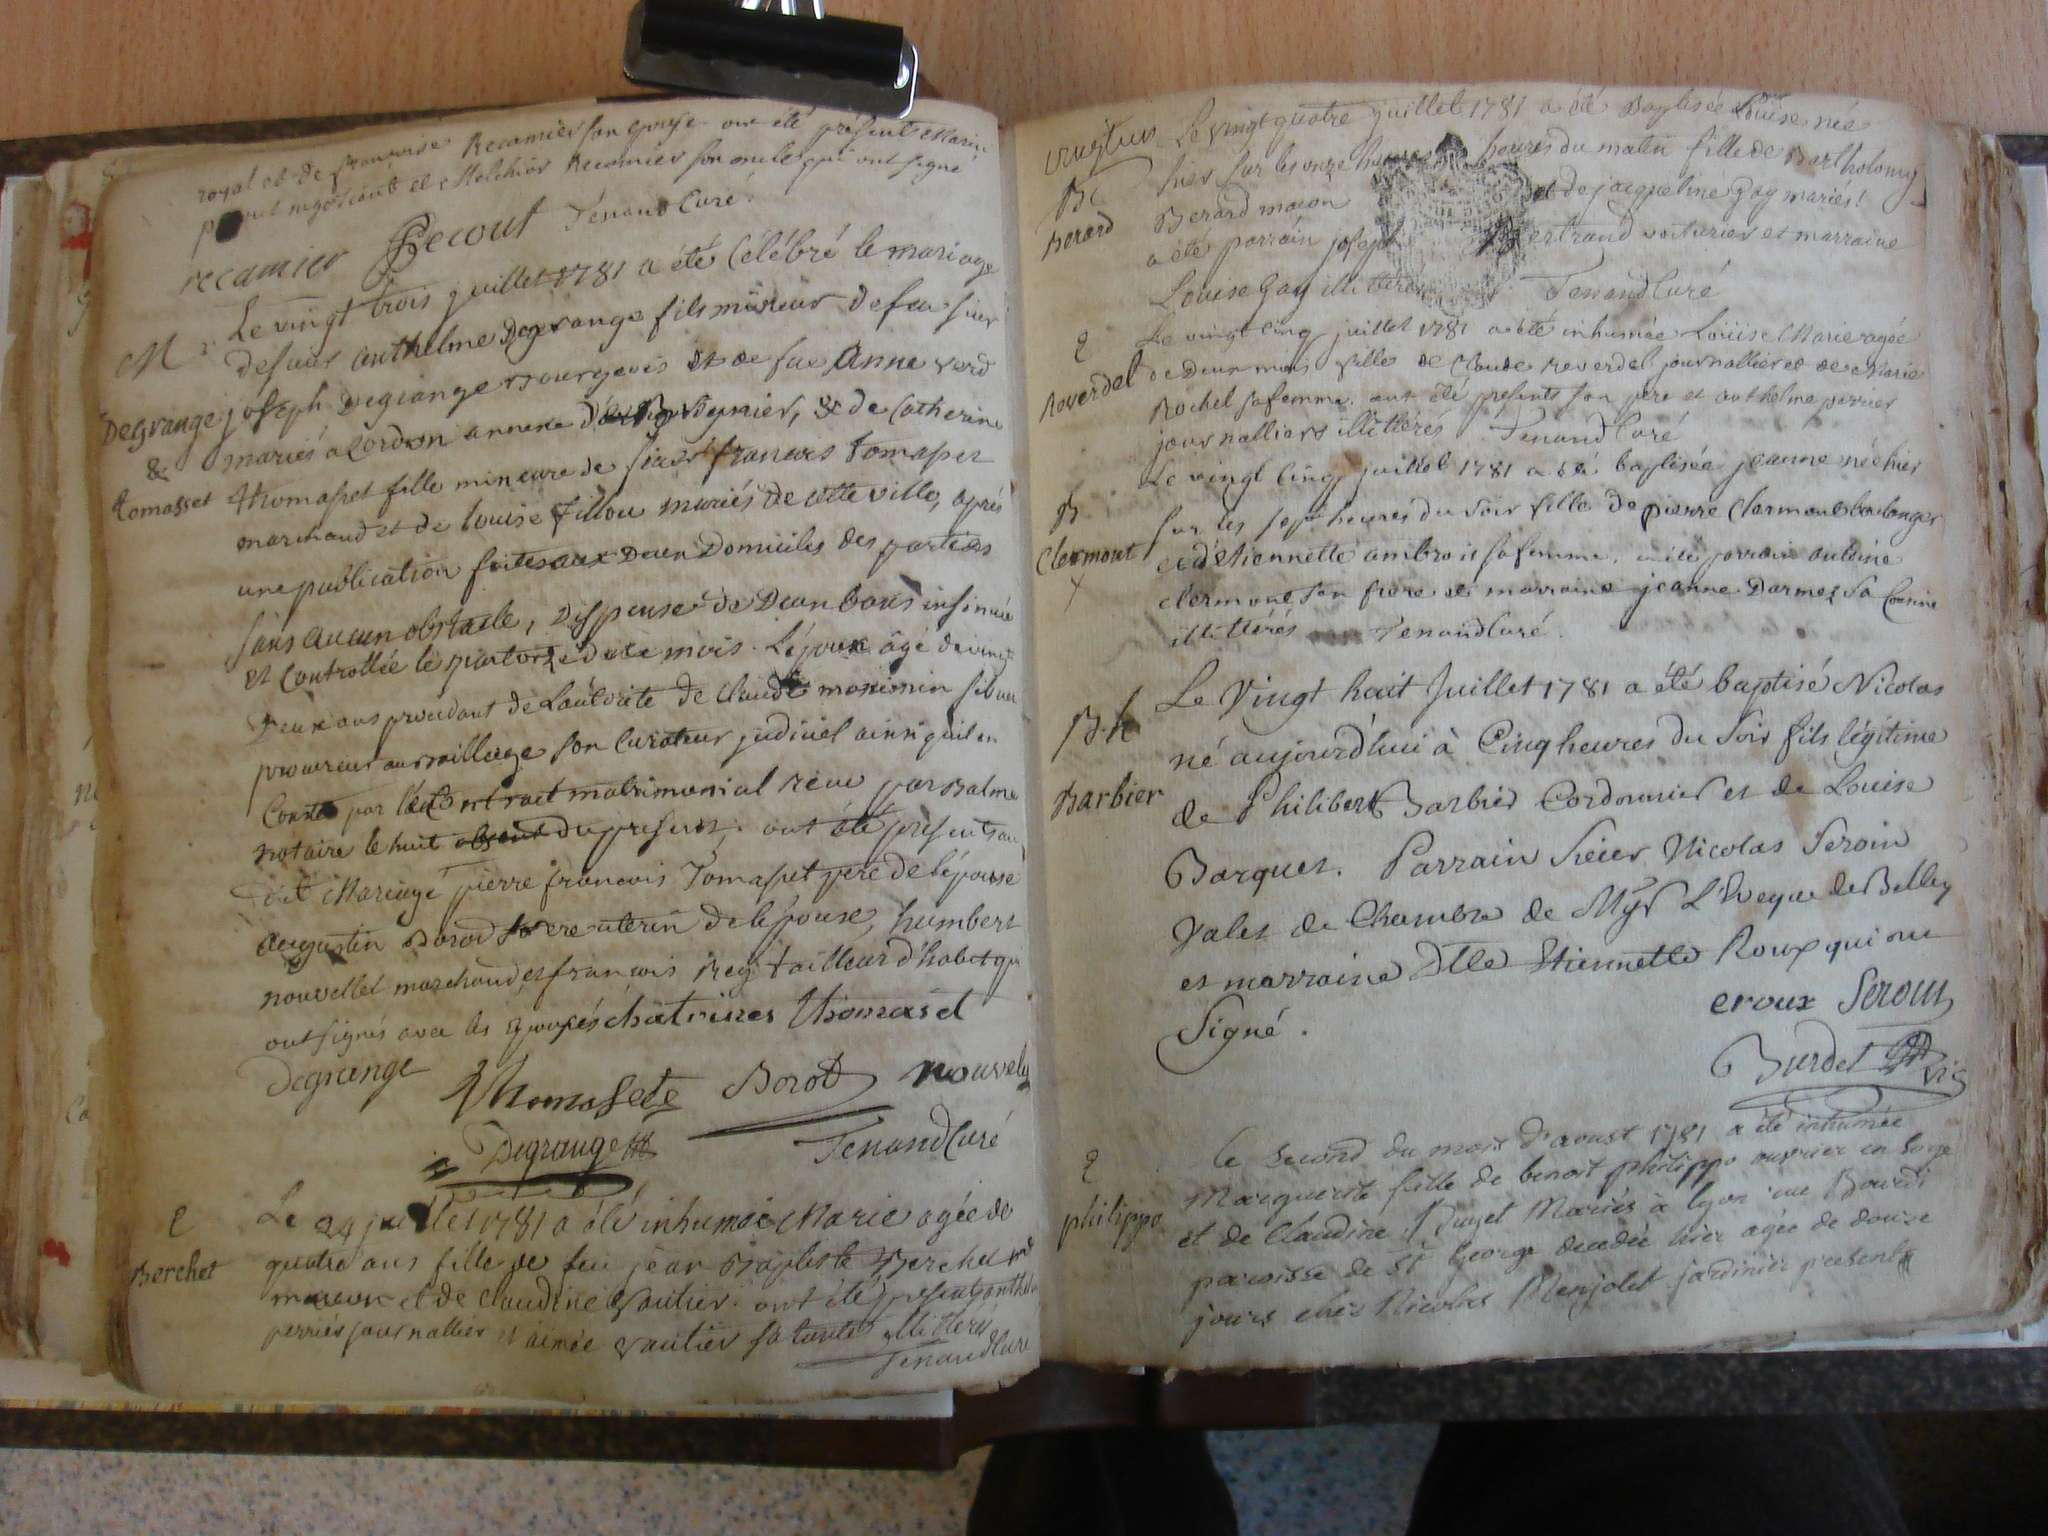 royal et de francoise Recamier son epouse. ont été présents Marin
negotiant et Melchior Recamier son oncle qui ont signé
recamier Recout Tenand Curé
M
Degrange
&
tomasset
Le vingt trois juillet 1781 a été Célébré le mariage
de sieur anthelme Degrange fils mineur de feu sieur
joseph Degrange Bourgeois et de fue Anne
mariés a Cordon annexe & de Catherine
thomasset fille mineure de sieur francois tomasset
marchand et de louise fillou mariés de cette ville, après
une publication faites aux Deux Domiciles des parties
sans aucun obstacle, Dispense de Deux bans insinuée
et Controllée le quatorze de ce mois. L'époux âgé de vingt
Deux ans procedant de L'autorité de Claude
procureur au Baillage son Curateur judiciel ainsi quil en
Conste par le Contract matrimonial Réçu par Balme
notaire le huit du present, ont été presents au
dit Mariage pierre francois Tomasset pere de l'épouse
augustin Borod frere uterin de l'épouse, humbert
nouvellet marchand et francois Rey tailleur d'habit qui
ont signés avec les epouxés chatrines thomaset
Degrange Thomasete Borod nouvely
Degrange Tenand Curé
Berchet
Le 24 juillet 1781 a été inhumée Marie agée de
quatre ans fille de feu jean Baptiste Berchet
et de Claudine Gautier. ont été present anthelme
perrier journallier et aimée Gautier sa tante illitterés
Tenand Curé
B
Berard
Le vingt quatre juillet 1781 a été Baptisée Louise née
hier sur les onze heures heures du matin fille de Bartholomy
Berard maçon et de jacqueline Gay mariés!
a été parrain joseph Bertrand voiturier et marraine
Louise Gay illitterés Tenand Curé
Reverdel
Le vingt cinq juillet 1781 a été inhumée Loüise Marie agée
de Deux mois fille de Claude reverdel journallier et de Marie
Rochel sa femme. ont été presents son pere et anthelme perrier
journalliers illittérés Tenand Curé
B
Clermont
Le vingt cinq juillet 1781 a été baptisée jeanne né hier
sur les sept heures du soir fille de pierre Clermont boulanger
et d'étiennette ambrois sa femme. a été parrain antoine
clermont son frere et marraine jeanne Darmez sa Cousine
illittérés Tenand Curé.
Barbier
Le Vingt huit Juillet 1781 a été baptisé Nicolas
né aujourd'hui à Cinq heures du Soir fils légitime
de Philibert Barbier Cordonnier et de Louise
Barquet. Parrain Sieur Nicolas Seroin
Valet de Chambre de Mgr L'Eveque de Belley
et marraine Dlle Etiennette Roux qui ont
Signé.
eroux Seroin
Burdet vic
philippe
Le second du mois d'aoust 1781 a été inhumée
Marguerite fille de benoit philippe ouvrier en soye
et de Claudine Puget Mariés à lyon rue
paroisse de St George decedée hier agée de douze
jours chés Nicolas Menjolet jardinier présent